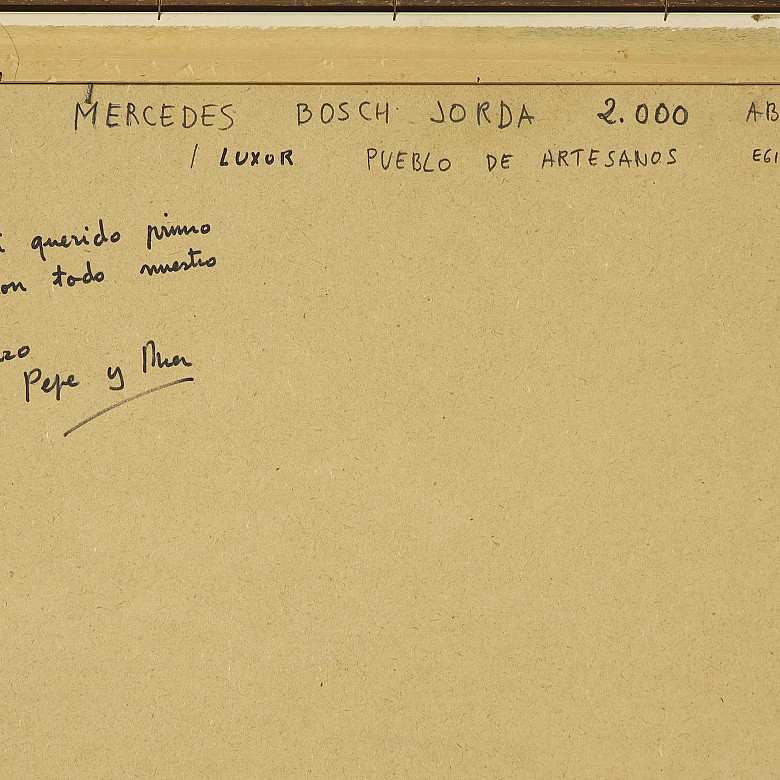 MERCEDES BOSCH JORDA 2.000 AB
/ LUXOR PUEBLO DE ARTESANOS EGI
querido primo
on todo nuestro
zo
Pepe y